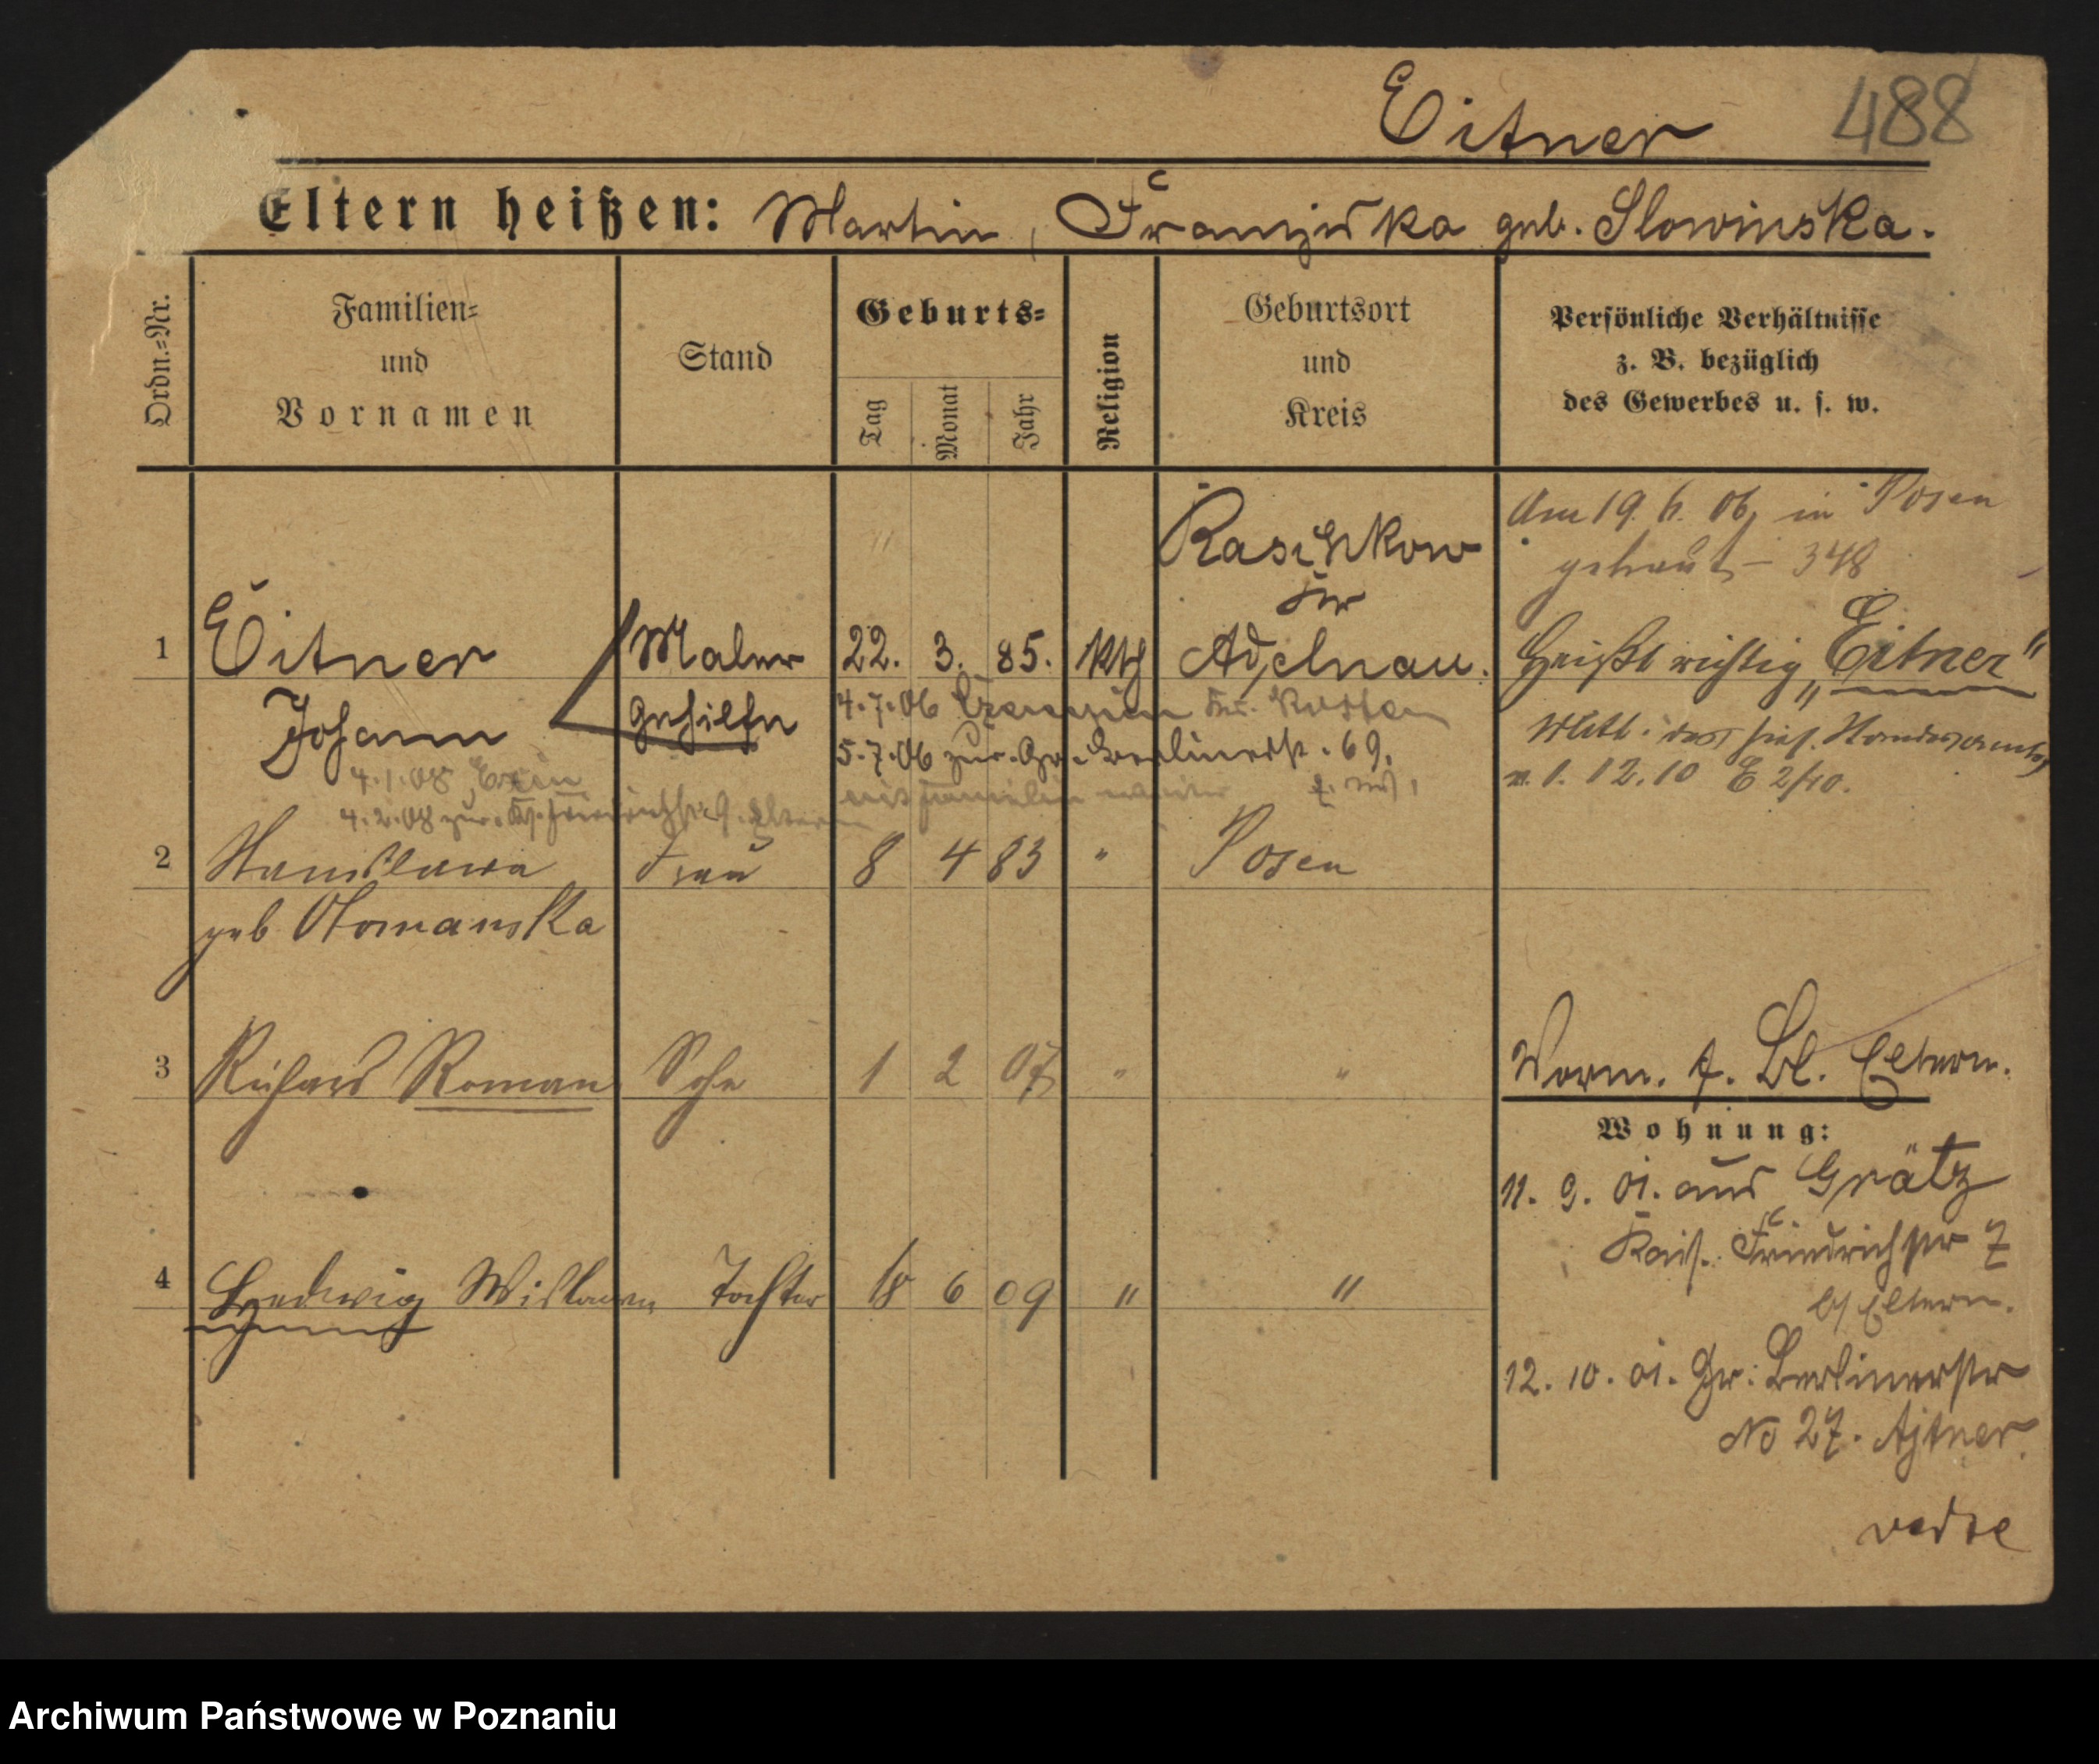 Eitner 488
Eltern heißen: Martin, Franziska geb. Slowinska.
Ordn.=Nr.
Familien=
und
Vornamen
Stand
Geburts=
Tag
Monat
Jahr
Religion
Geburtsort
und
Kreis
Persönliche Verhältnisse
z. B. bezüglich
des Gewerbes u. s. w.
Am 19. 6. 06 in Posen
getraut – 348
Raschkow
Kr
1 Eitner Maler 22. 3. 85. kth Adelnau. Heißt richtig „Eitner"
Johann Gehilfe
4.7.06 Kr. Kosten
5.7.06 zur. Gr. Berlinerstr. 69.
Mitt. des hies. Standesamts
v. 1. 12. 10 E 2/10.
4.1.08 Exin
4.2.08 zur. Ks. Friedrichstr. 9. Eltern
mit Familie
2 Stanislawa Frau 8 4 83 " Posen
geb Otomanska
3 Richard Roman Sohn 1 2 07 " "
Vorm. f. Bl. Eltern.
Wohnung:
11. 9. 01. aus Grätz
Kais. Friedrichstr 7
b/ Eltern.
4 Hedwig Tochter 18 6 09 " "
12. 10. 01. Gr. Berlinerstr
No 27. Ajtner